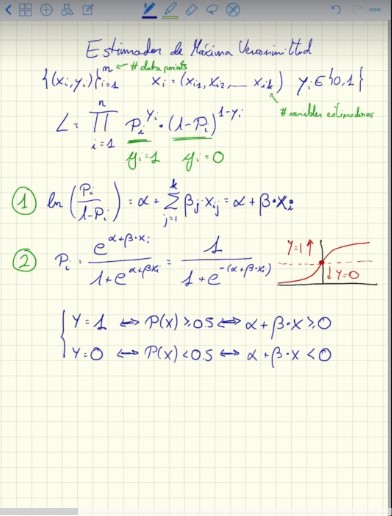 Estimador de Máxima Verosimilitud
{(xi, yi)}ⁿi=1 ← # data points xi = (xi1, xi2, ... xik) yi ∈ {0,1}
# variables estimadoras
L = ∏ⁿi=1 Pi^yi · (1-Pi)^1-yi
yi=1 yi=0
① ln (Pi / 1-Pi) = α + ∑ᵏj=1 βj·xij = α + β·xi
② Pi = e^α+β·xi / 1+e^α+βxi = 1 / 1+e^-(α+β·xi)
Y=1↑
↓Y=0
{ Y=1 ⇔ P(X) ≥ 0.5 ⇔ α+β·x ≥ 0
Y=0 ⇔ P(X) < 0.5 ⇔ α+β·x < 0